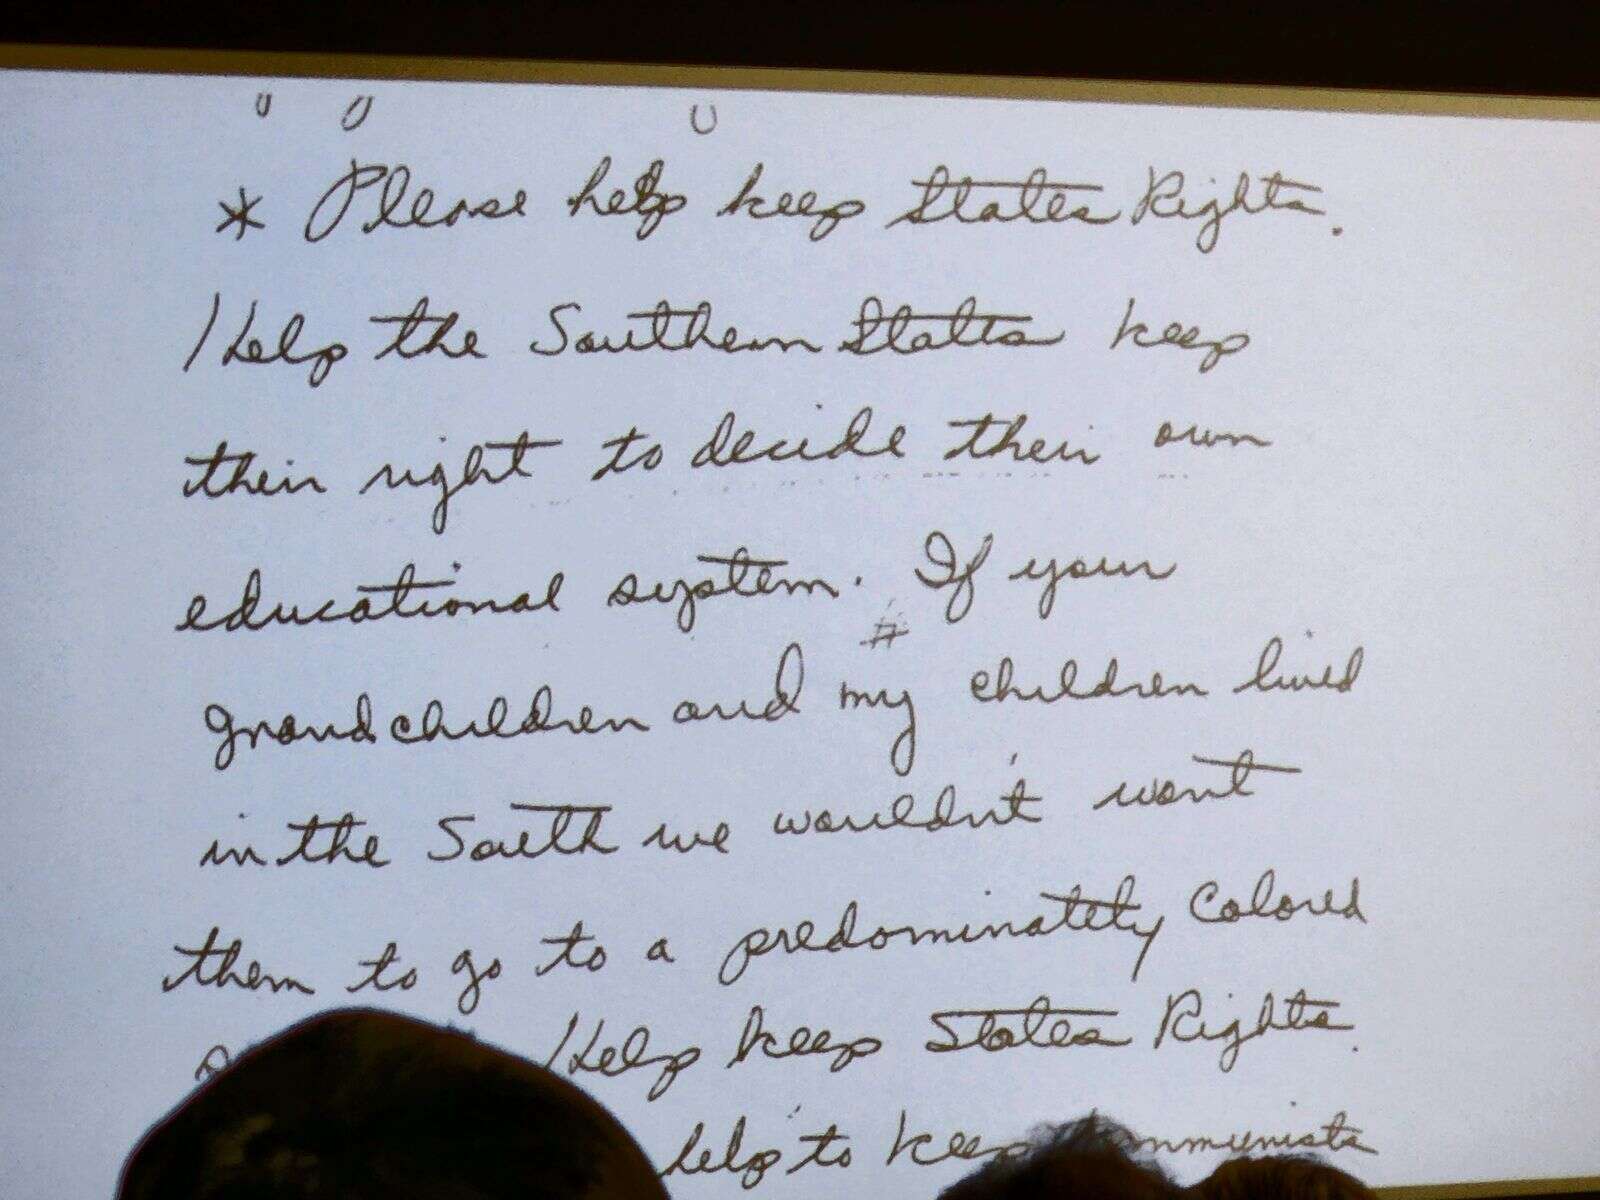 * Please help keep States Rights.
Help the Southern States keep
their right to decide their own
educational system. If your
grandchildren and my children lived
in the South we wouldn't want
them to go to a predominately Colored
Help keep States Rights.
help to keep